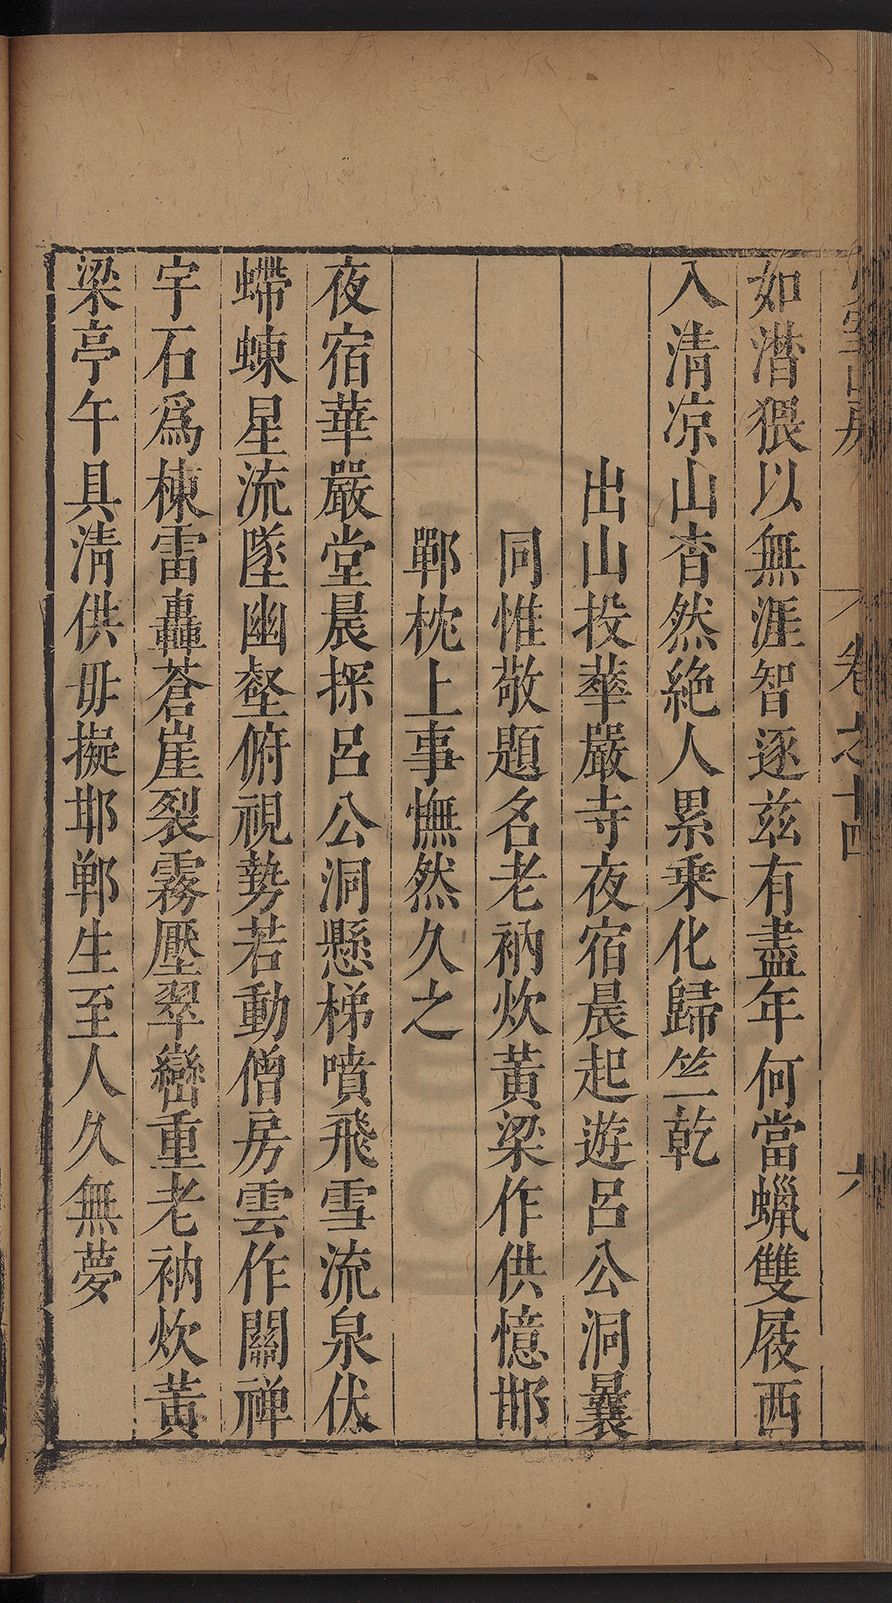 卷之十四
如澘猥以無涯智逐兹有盡年何當蠟雙屐西
入清凉山杳然絶人累乗化歸竺乾
出山投華嚴寺夜宿晨起遊呂公洞曩
同惟敬題名老衲炊黄梁作供憶邯
鄲枕上事憮然久之
夜宿華嚴堂晨探呂公洞懸梯噴飛雪流泉伏
螮蝀星流墜幽壑俯視勢若動僧房雲作關禅
宇石爲棟雷轟蒼崖裂霧壓翠巒重老衲炊黄
梁亭午具清供毋擬邯鄲生至人久無夢